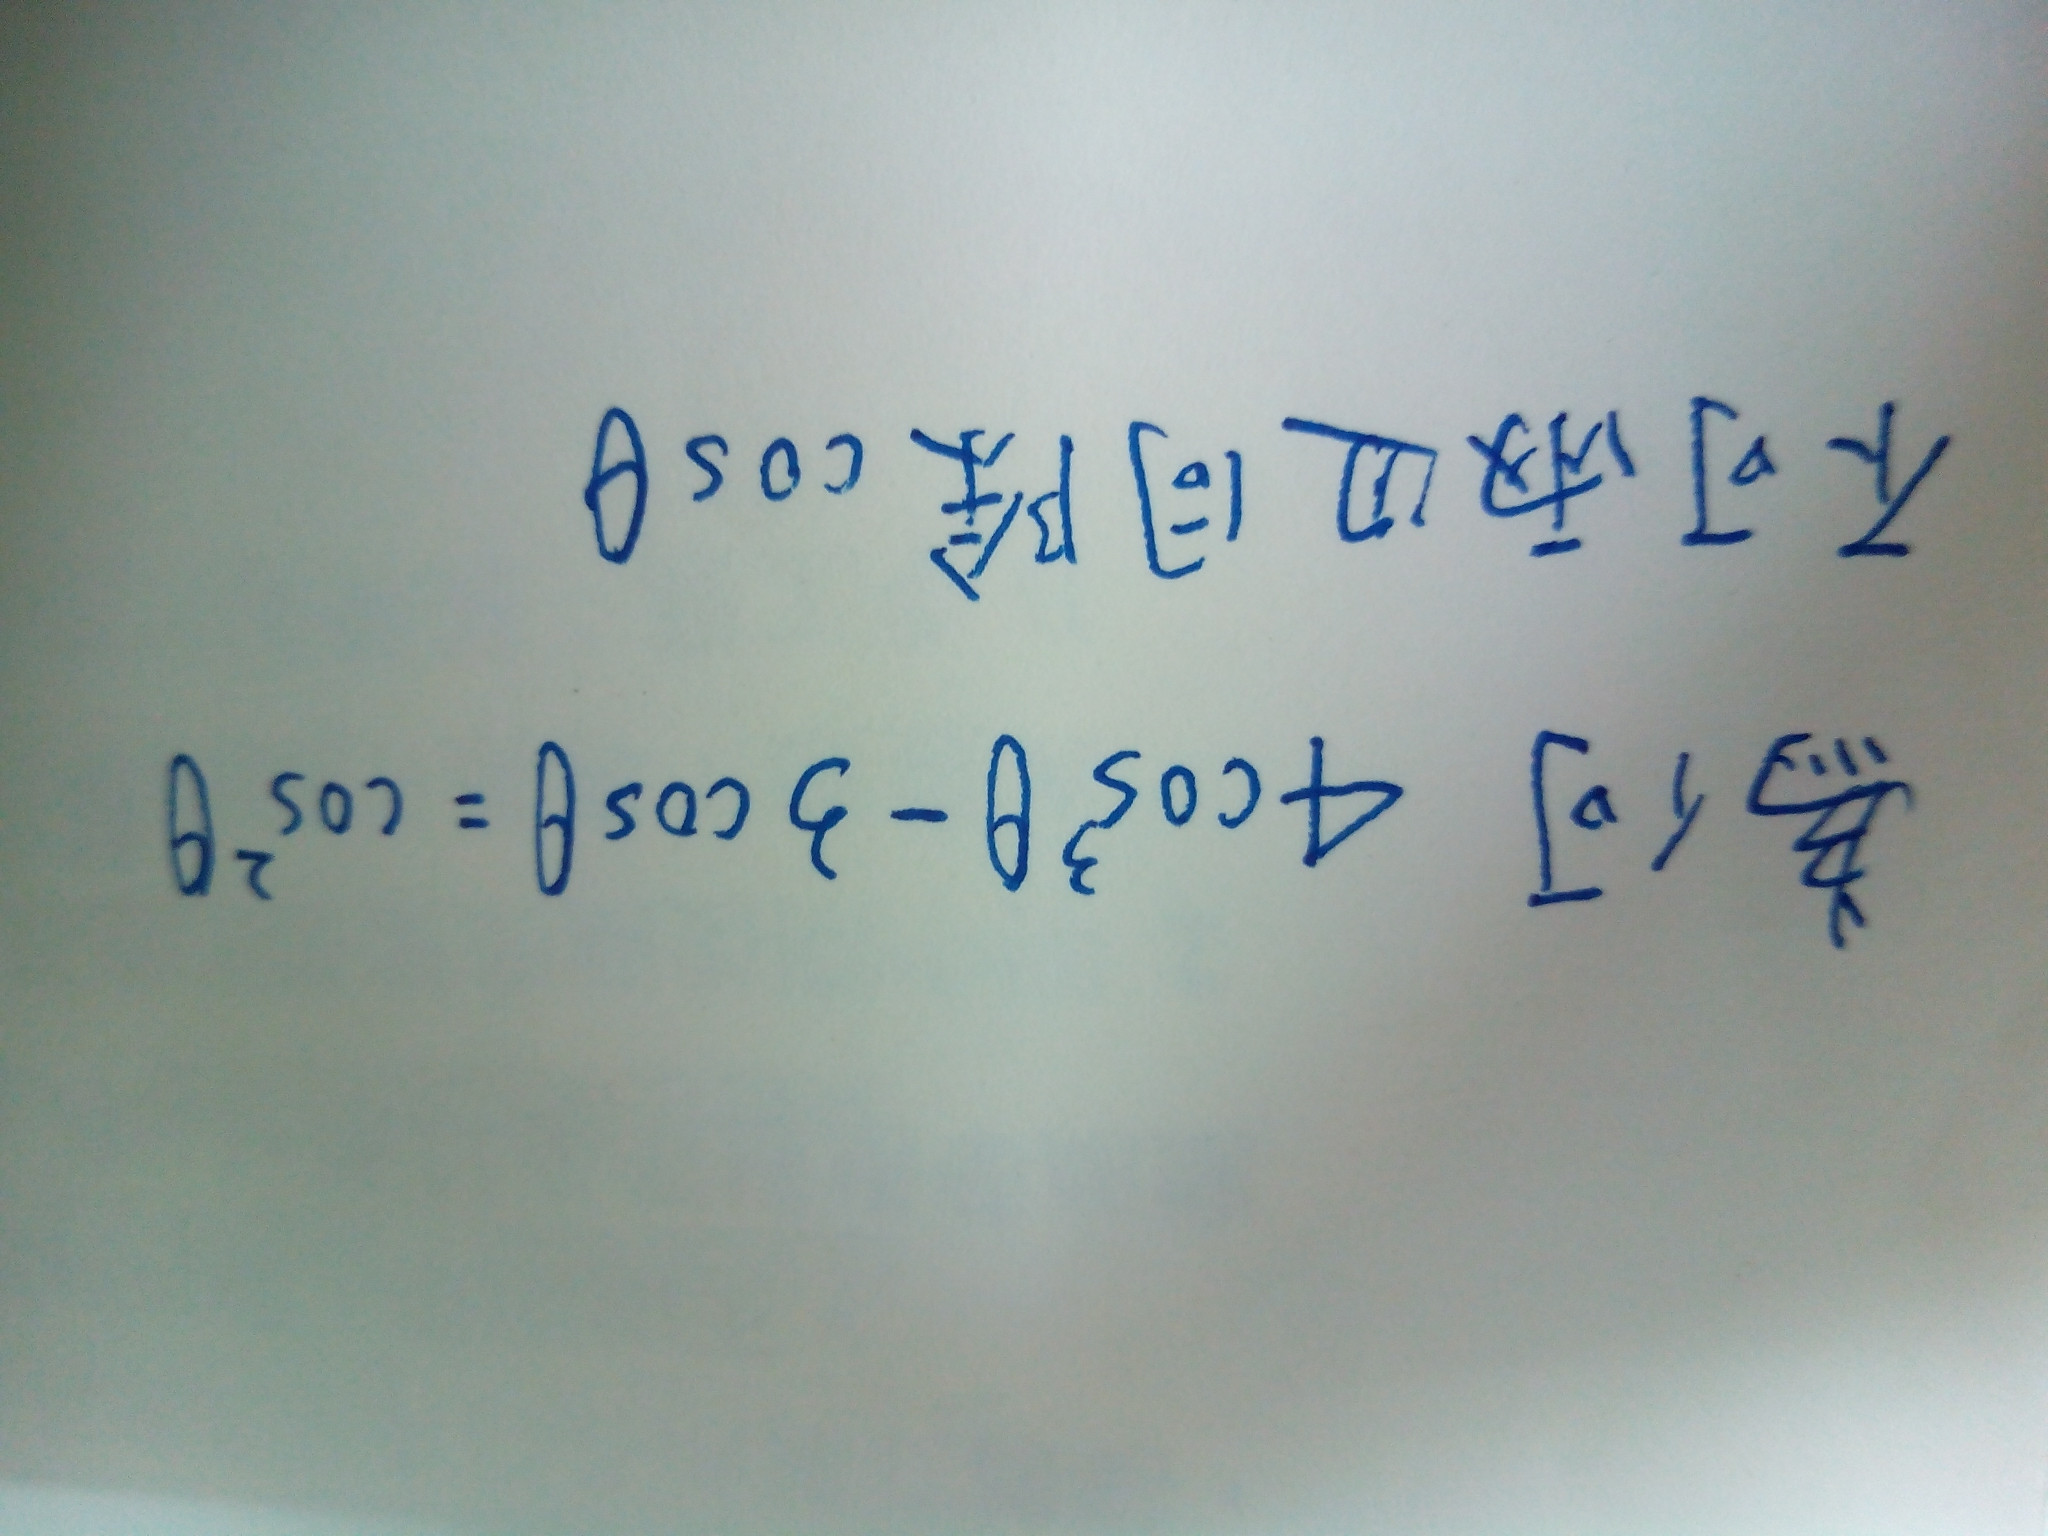 為何 4cos³θ - 3cosθ = cos²θ
不可兩邊同除 cosθ